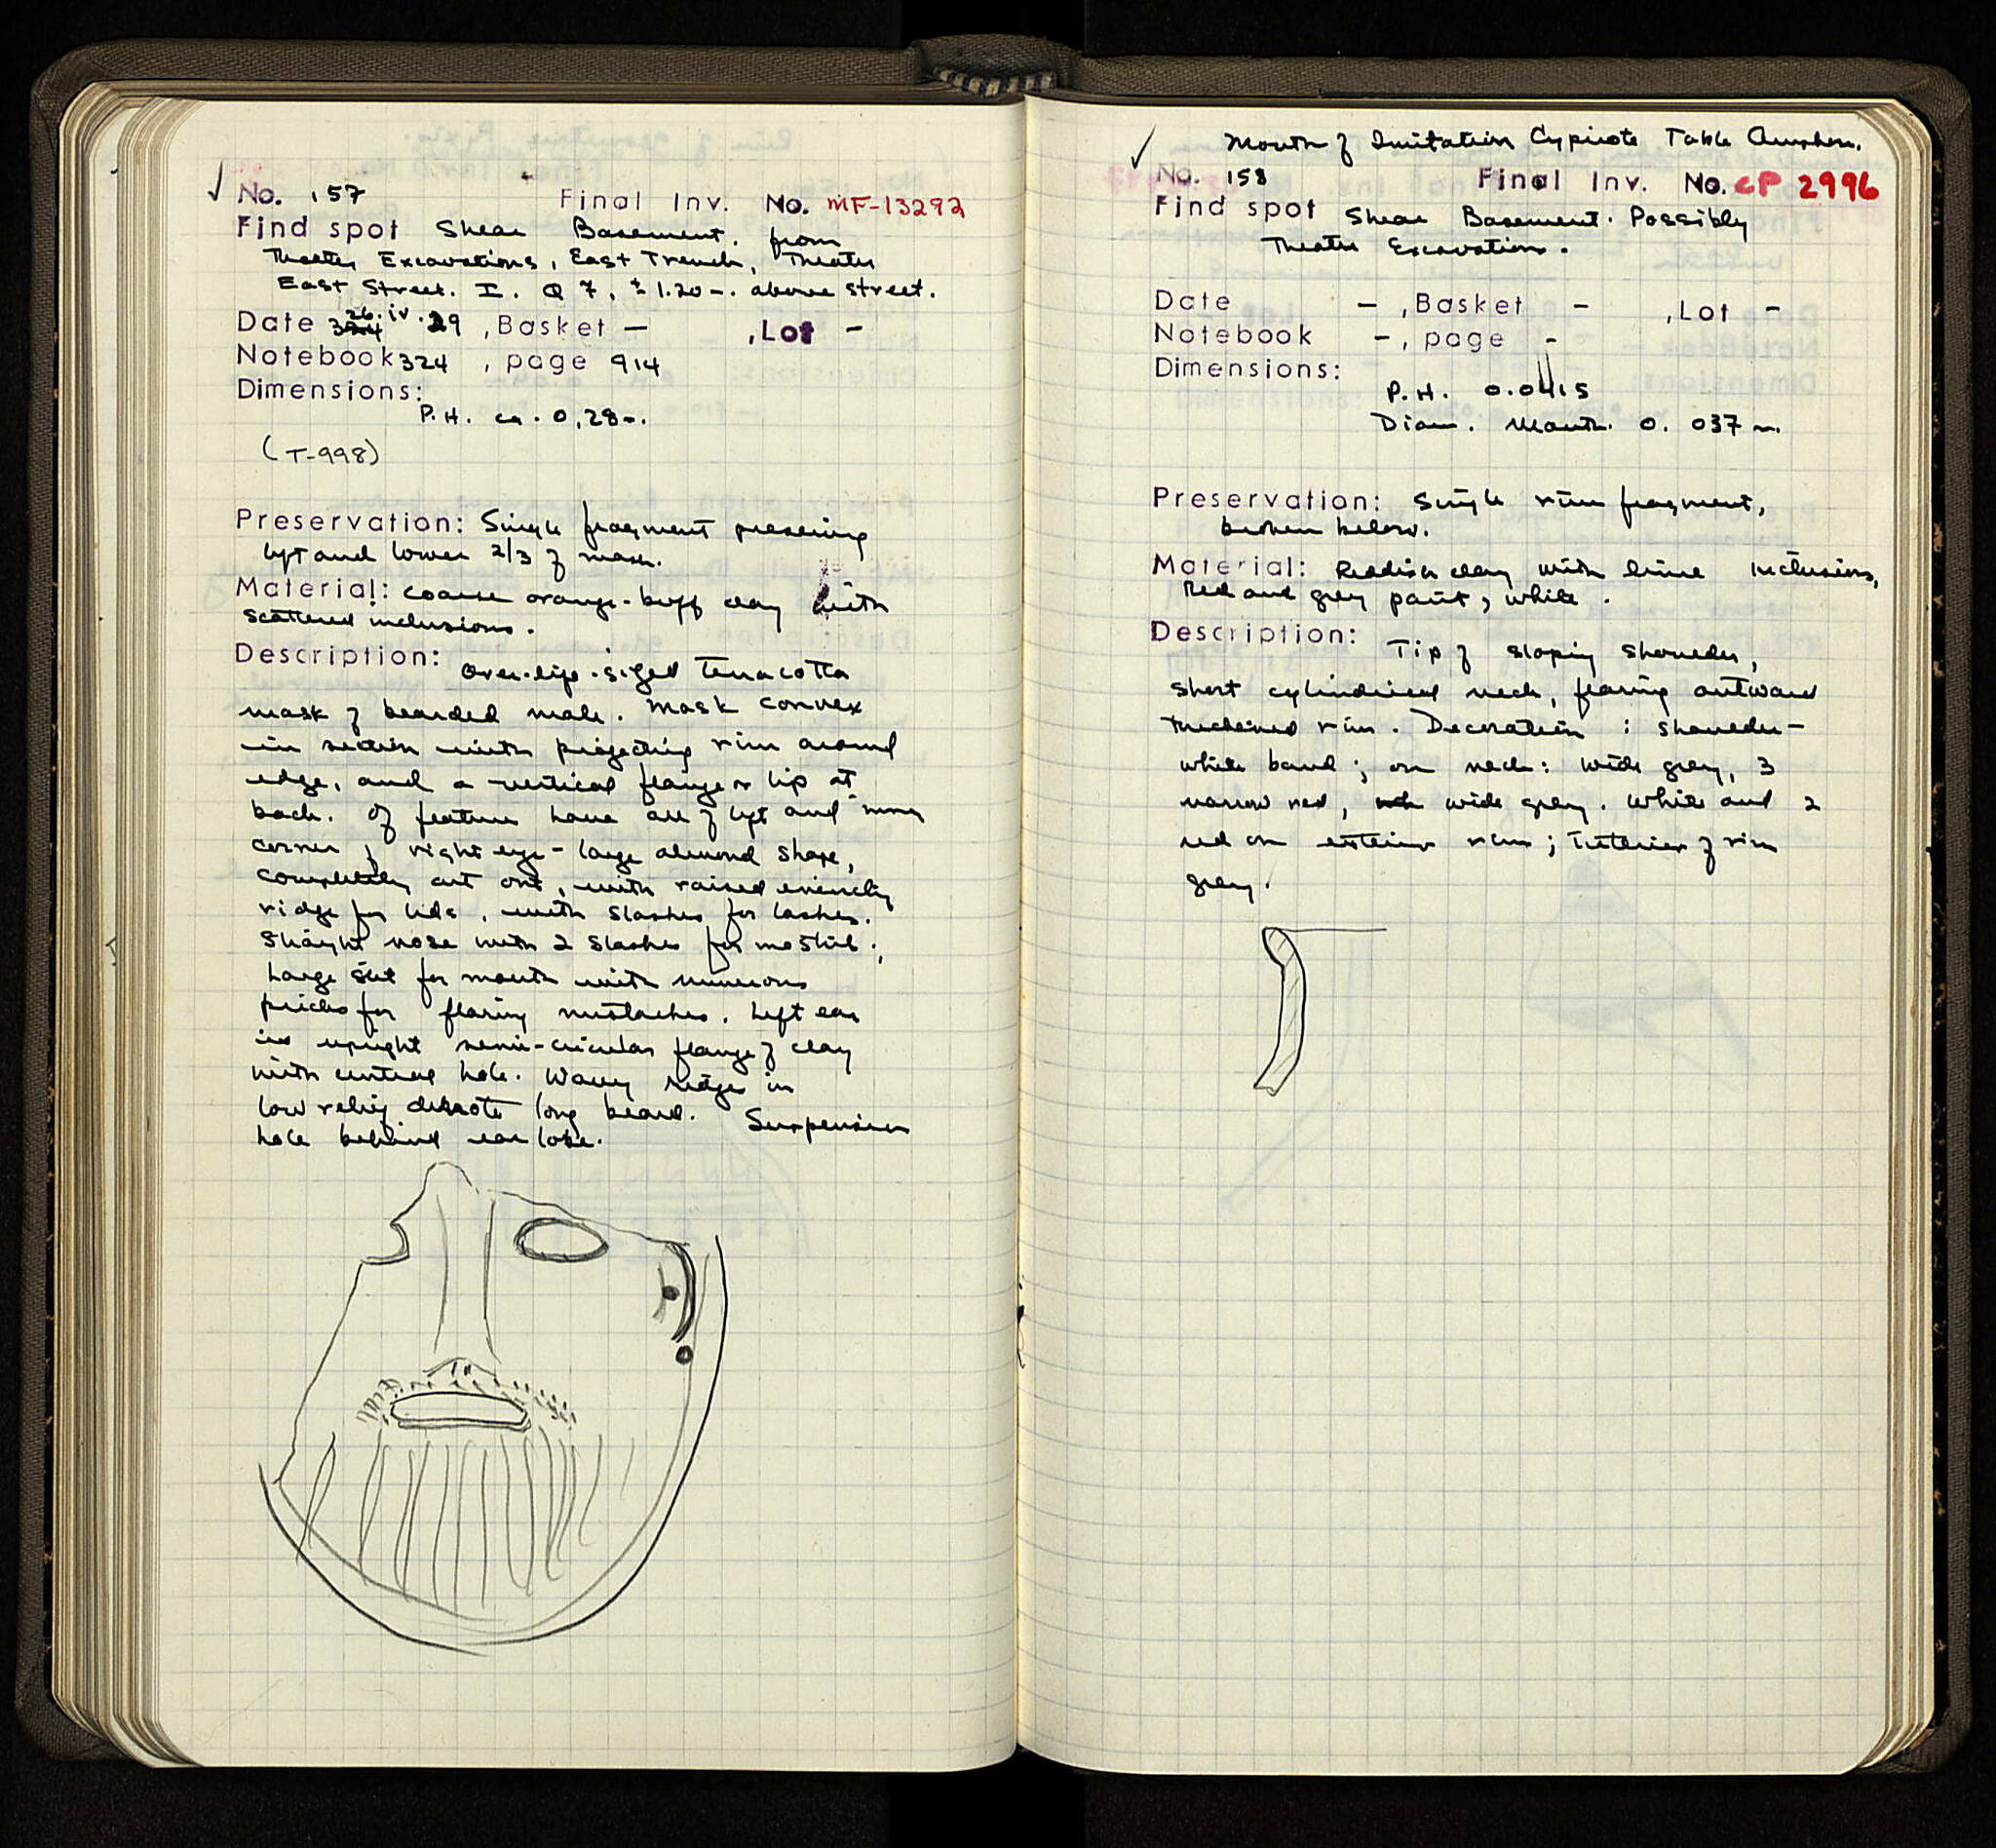 No. 157 Final Inv. No. MF-13292
Find spot Shear Basement. from
Theater Excavations, East Trench, Theater
East Street. I. Q 7, ± 1.20 m. above street.
Date 26.iv.29 , Basket – , Lot –
Notebook 324 , page 914
Dimensions:
P.H. ca. 0,28 m.
(T-998)
Preservation: Single fragment preserving
left and lower 2/3 of mask.
Material: Coarse orange-buff clay with
scattered inclusions.
Description: Over-life-sized terracotta
mask of bearded male. Mask convex
in section with projecting rim around
edge, and a vertical flange or lip at
back. Of features have all of left and inner
corner of right eye - large almond shape,
completely cut out, with raised encircling
ridge for lids, with slashes for lashes.
Straight nose with 2 slashes for nostril;
Large slit for mouth with numerous
pricks for flaring mustaches. Left ear
is upright semi-circular flange of clay
with central hole. Wavy ridges in
low relief denote long beard. Suspension
hole behind ear lobe.
Mouth of Imitation Cypriote Table Amphora.
No. 158 Final Inv. No. CP 2996
Find spot Shear Basement. Possibly
Theater Excavation.
Date – , Basket – , Lot –
Notebook – , page –
Dimensions:
P.H. 0.0415
Diam. Mouth. 0.037 m.
Preservation: Single rim fragment,
broken below.
Material: Reddish clay with lime inclusions,
Red and grey paint, white.
Description: Tip of sloping shoulder,
short cylindrical neck, flaring outward
thickened rim. Decoration: shoulder -
white band; on neck: wide grey, 3
narrow red, wide grey. White and 2
red on exterior rim; Interior of rim
grey.